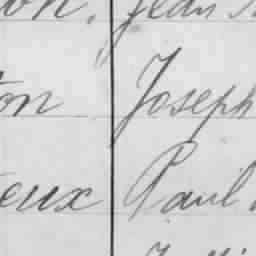 on. Jean
ton Joseph
eux Paul